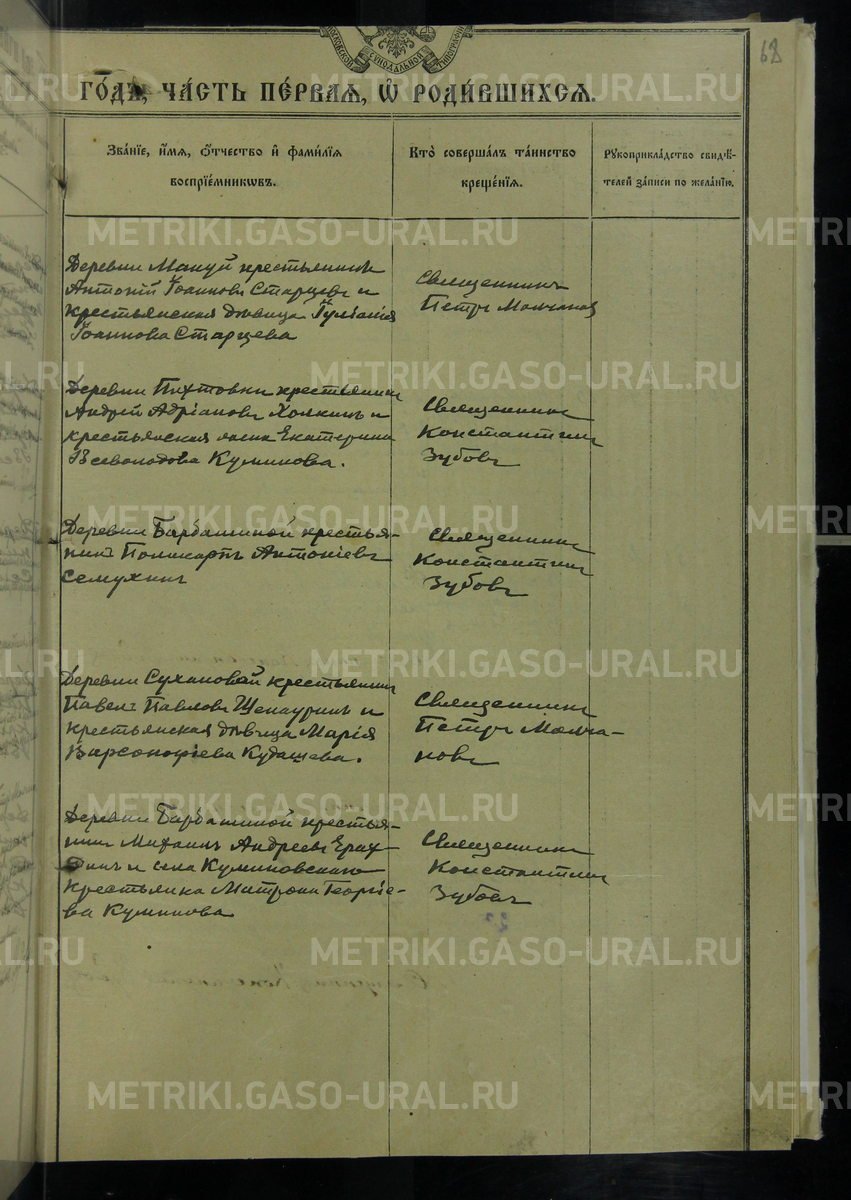 МОСКОВСКОЙ СИНОДАЛЬНОЙ ТИПОГРАФІИ
62
ГОДА, ЧАСТЬ ПЕРВАЯ, Ѡ РОДИВШИХСЯ.
Званіе, имя, отчество и фамилія
воспріемниковъ.
Кто совершалъ таинство
крещенія.
Рукоприкладство свидѣ-
телей записи по желанію.
Деревни крестьянинъ
Антоній Іоанновъ Старцевъ и
крестьянская дѣвица Іуліанія
Іоаннова Старцева
Священникъ
Петръ Молчановъ
Деревни Пихтовки крестьянинъ
Андрей Адріановъ Холкинъ и
крестьянская Екатерина
Всеволодова Куминова.
Священникъ
Константинъ
Зубовъ
Деревни Барбашиной крестья-
нинъ Поликарпъ Антоніевъ
Семухинъ
Священникъ
Константинъ
Зубовъ
Деревни Сухановой крестьянинъ
Павелъ Павловъ Щепауринъ и
крестьянская дѣвица Марія
Варсонофіева Кудашева.
Священникъ
Петръ Молча-
новъ
Деревни Барбашиной крестья-
нинъ Михаилъ Андреевъ
и села Куминовскаго
крестьянка Матрона Георгіе-
ва Куминова
Священникъ
Константинъ
Зубовъ
METRIKI.GASO-URAL.RU